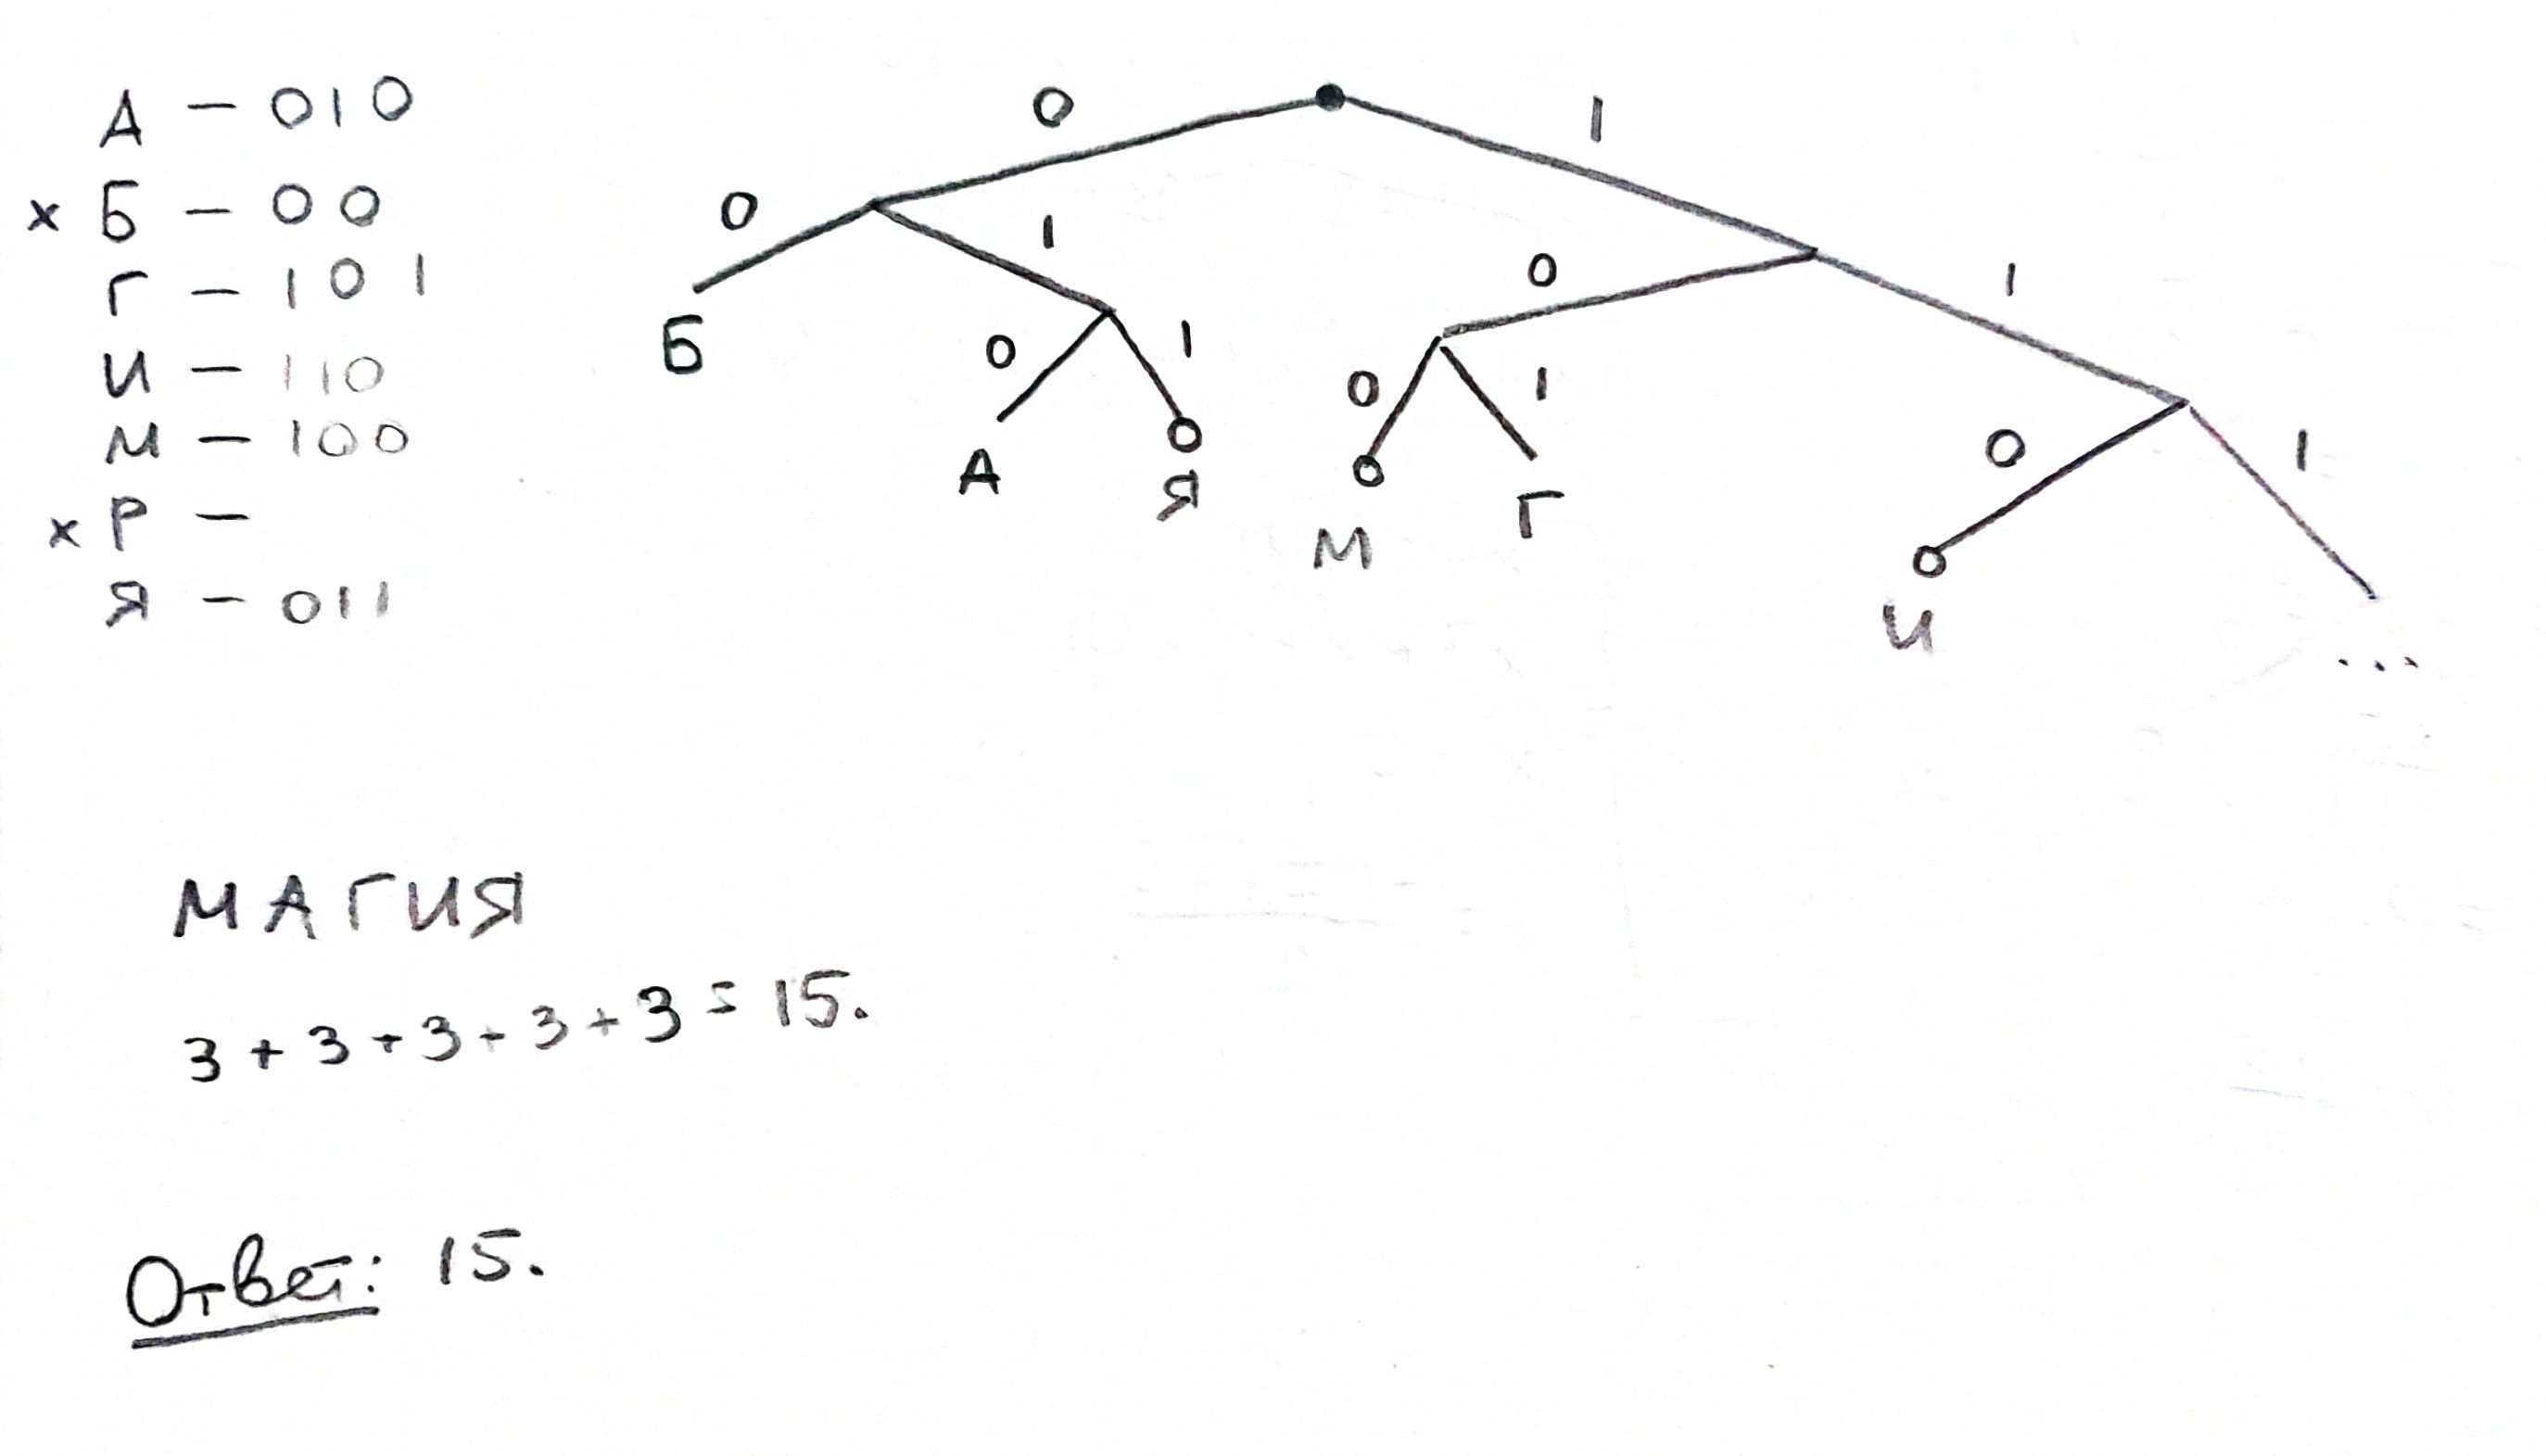 А – 010
× Б – 00
Г – 101
И – 110
М – 100
× Р –
Я – 011
0 1
0 1 0 1
Б
0 1 0 1 0 1
А Я М Г И ...
МАГИЯ
3 + 3 + 3 + 3 + 3 = 15.
Ответ: 15.